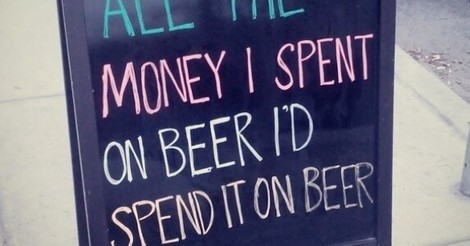 ALL THE
MONEY I SPENT
ON BEER I'D
SPEND IT ON BEER